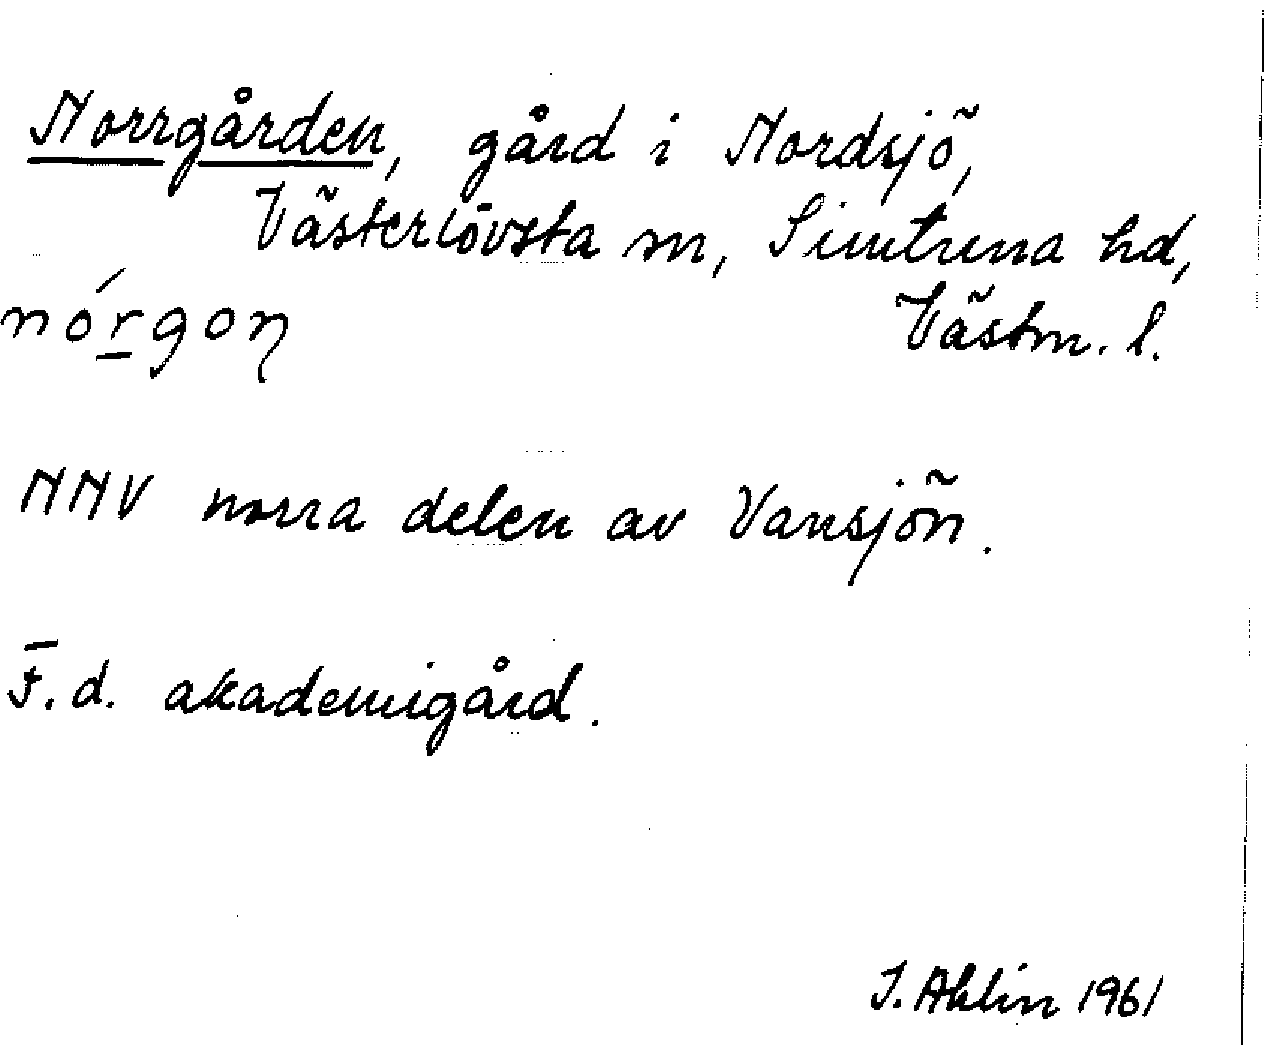 Norrgården, gård i Nordsjö,
Västerlövsta sn, Simtuna hd,
Västm. l.
nórgoņ
NNV norra delen av Vansjön.
F.d. akademigård.
I. Ahlin 1961